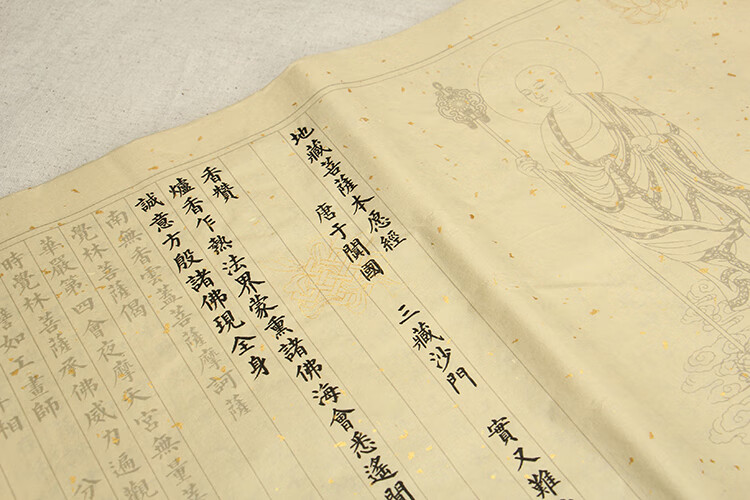 地藏菩薩本愿經
唐于闐國 三藏沙門 實又難
香贊
爐香乍熱法界蒙熏諸佛海會悉遙聞
誠意方殷諸佛現全身
南無香雲蓋菩薩摩訶薩
覺林菩薩偈
華嚴第四會夜摩天宮無量菩
時覺林菩薩承佛威力遍觀
譬如工畫師 分